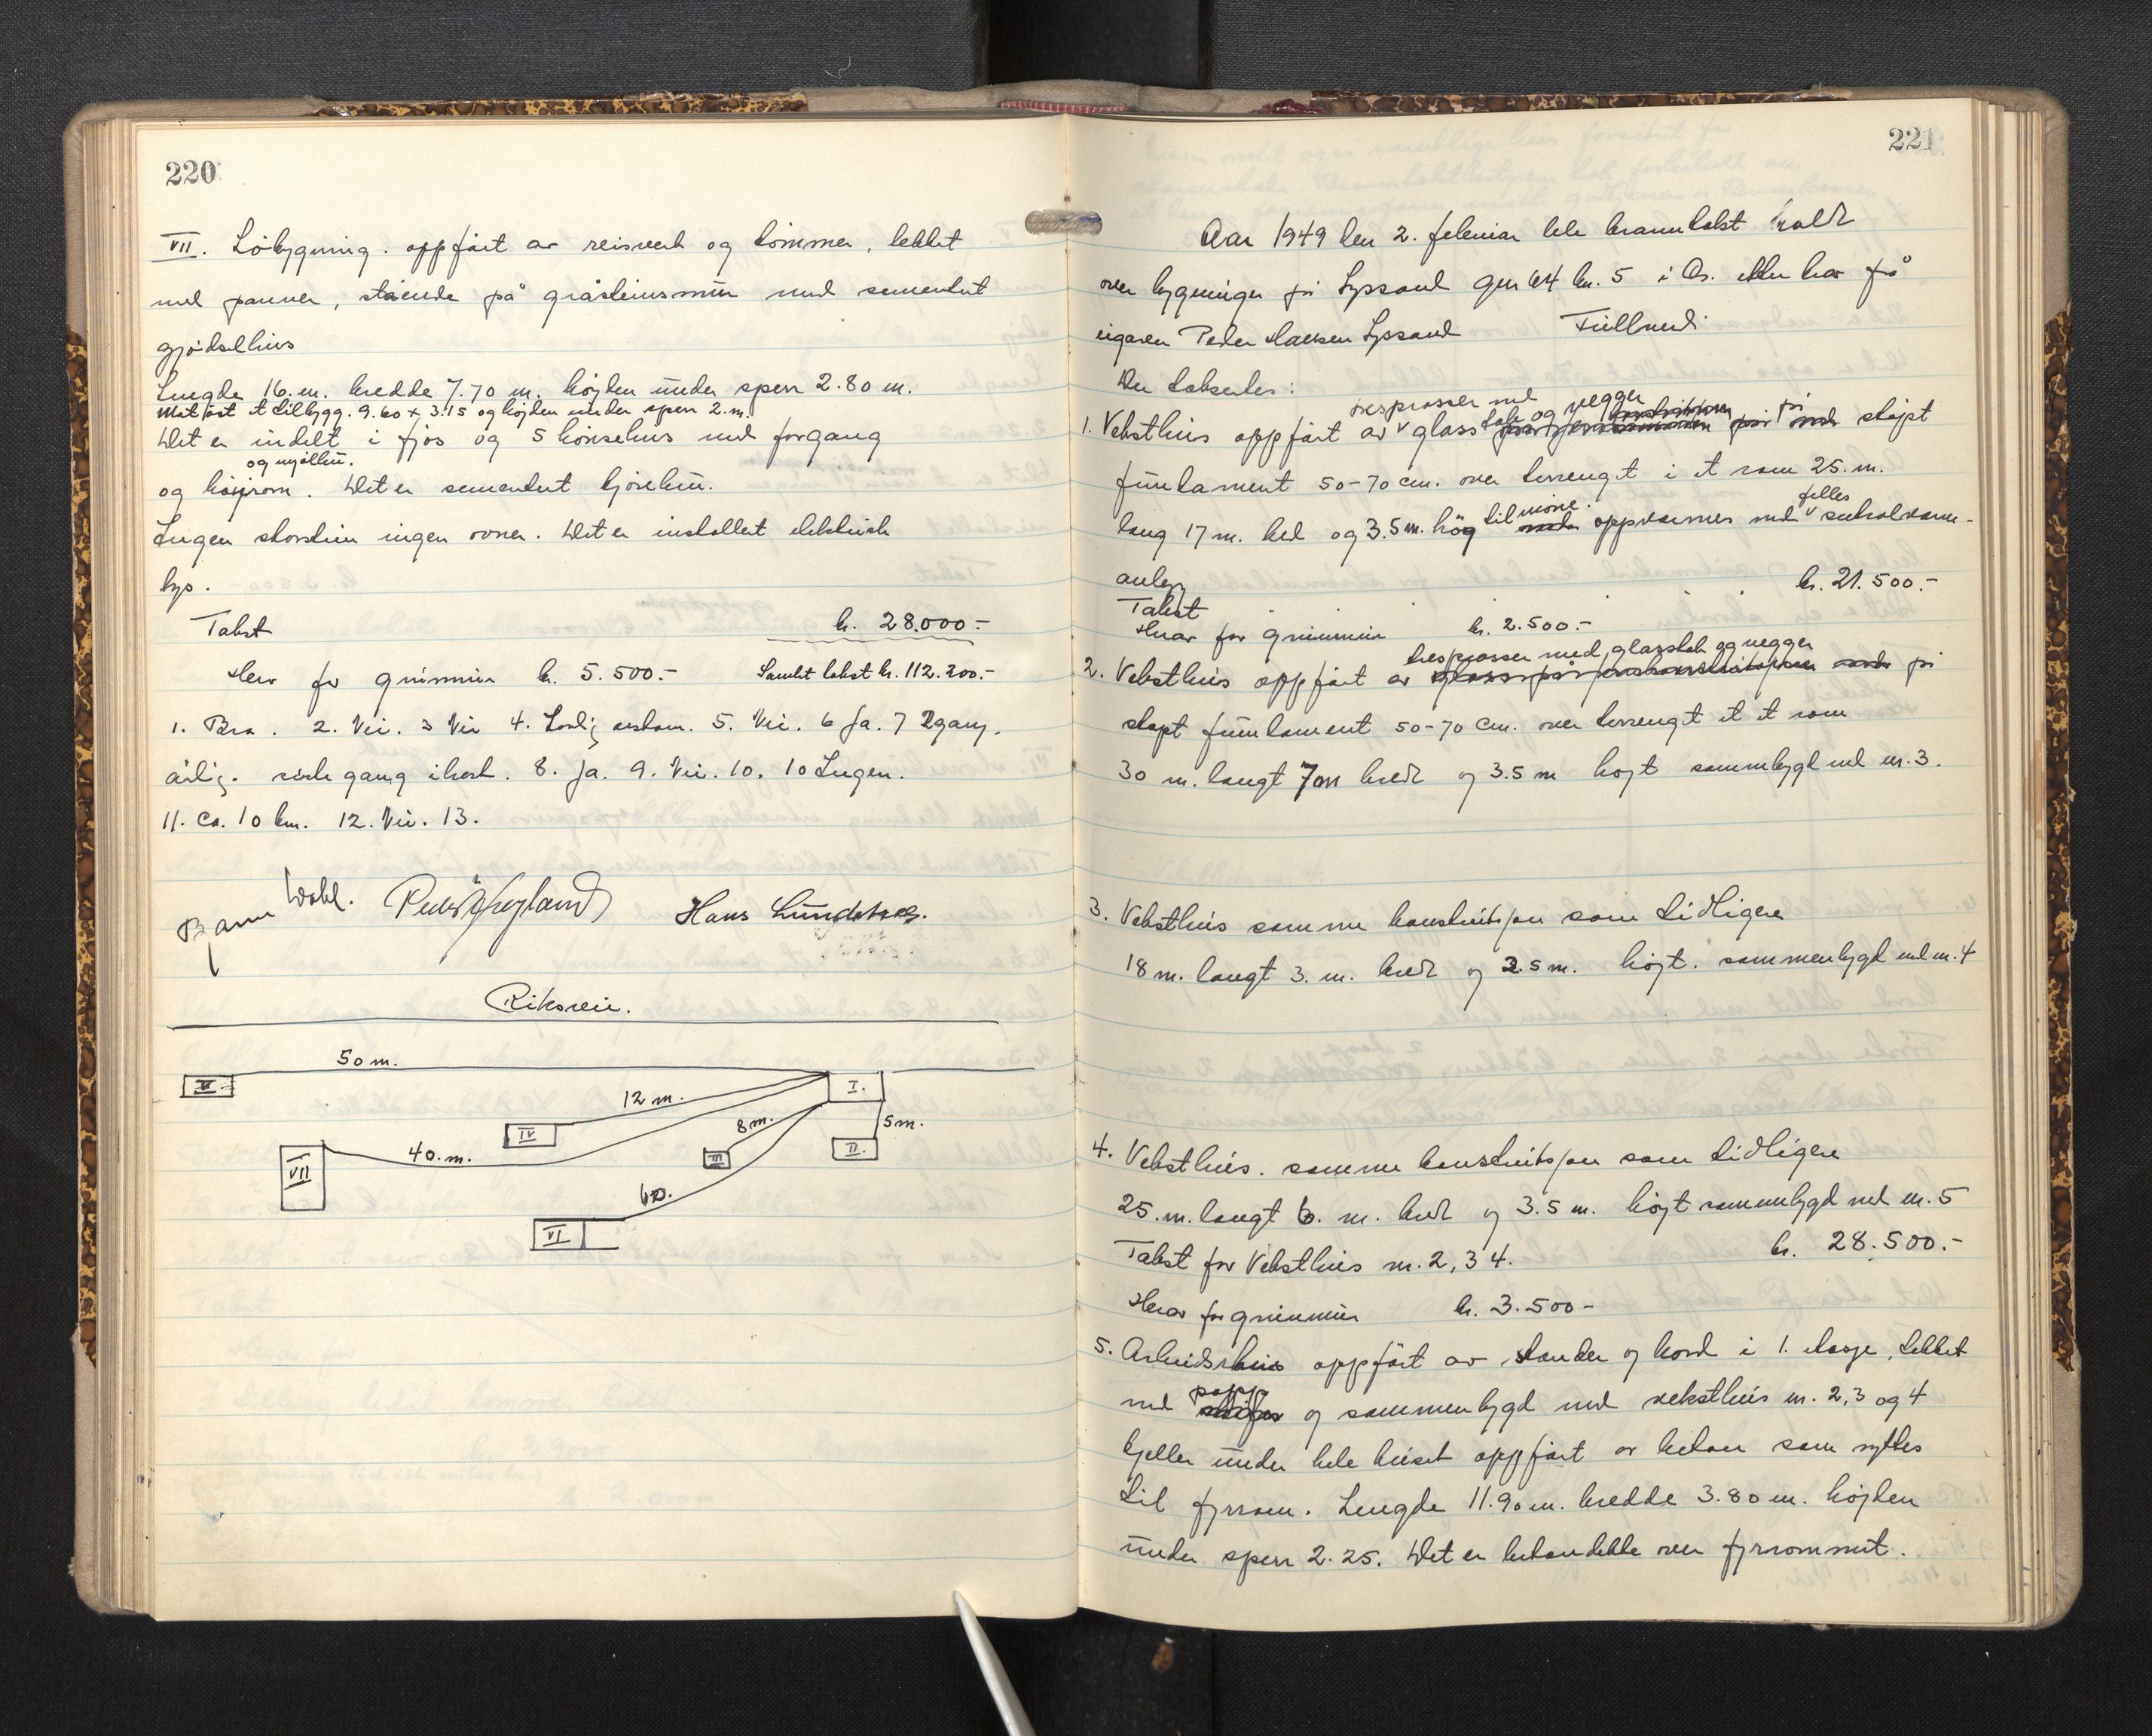 220
VII. Löbygning. oppfört av reisverk og tömmer, tekket
med panner, stående på gråsteinsmur med sementert
gjödselhus
Lengde 16.m. bredde 7.70 m. höjden under sperr 2.80 m.
Mot öst et tilbygg. 9.60 x 3.15 og höjden under sperr 2.m.
Det er indelt i fjös og 5 hönsehus med forgang
og mjöllbu.
og höyrom. Det er sementert kjörebru.
Ingen skorstein ingen ovner. Det er installert elektrisk
lys.
Takst kr. 28.000.-
Herav for grunmur kr. 5.500.- Samlet takst kr. 112.200.-
1. Bra. 2. Nei. 3 Nei 4. Lovlig avstan. 5. Nei. 6 Ja. 7 2 gang.
årlig. siste gang i host. 8. Ja. 9. Nei. 10. 10 Ingen.
11. Ca. 10 km. 12. Nei. 13.
Hans Lundeberg.
Riksvei.
50 m.
V.
I.
12 m.
IV
8 m.
5 m.
III
II.
40. m.
VII
60.
VI
221
Aar 1949 den 2. februar ble branntakst holdt
over bygninger på Lyssand gnr 64 bn. 5 i Os. etter krav frå
eigaren Peder Hansen Lyssand Fullmakt
Der takseres:
tresprosser med tak og vegger på
1. Veksthus oppfört av glass støpt
fundament 50-70 cm. over terrenget i et rom 25. m.
lang 17 m. bred og 3.5 m. hög til möne. oppvarmes med felles sentralvarm-
anlegg kr. 21.500.-
Takst
Herav for grunmur kr. 2.500.-
tresprosser med glasstak og vegger
2. Veksthus oppfört av på
støpt fundament 50-70 cm. over terrenget et et rom
30 m. langt 7 m bredt og 3.5 m högt sammbygd med nr. 3.
3. Veksthus samme konstruksjon som tidligere
18 m. langt 3. m. bredt og 2.5 m. höjt. sammenbygd med nr. 4
4. Veksthus. samme konstruksjon som tidligere
25. m. langt 6. m. bredt og 3.5 m. höjt sammenbygd med nr. 5
Takst for Veksthus nr. 2, 3 4. kr. 28.500.-
Herav for grunmur kr. 3.500-
5. Arbeidshus oppfört av stander og bord i 1. etasje, tekket
med papp og sammenbygd med veksthus nr. 2, 3 og 4
kjeller under hele huset oppfört av beton som nyttes
til fyrrom. Lengde 11.90 m. bredde 3.80 m. höjden
under sperr 2.25. Det er betondekke over fyrrommet.